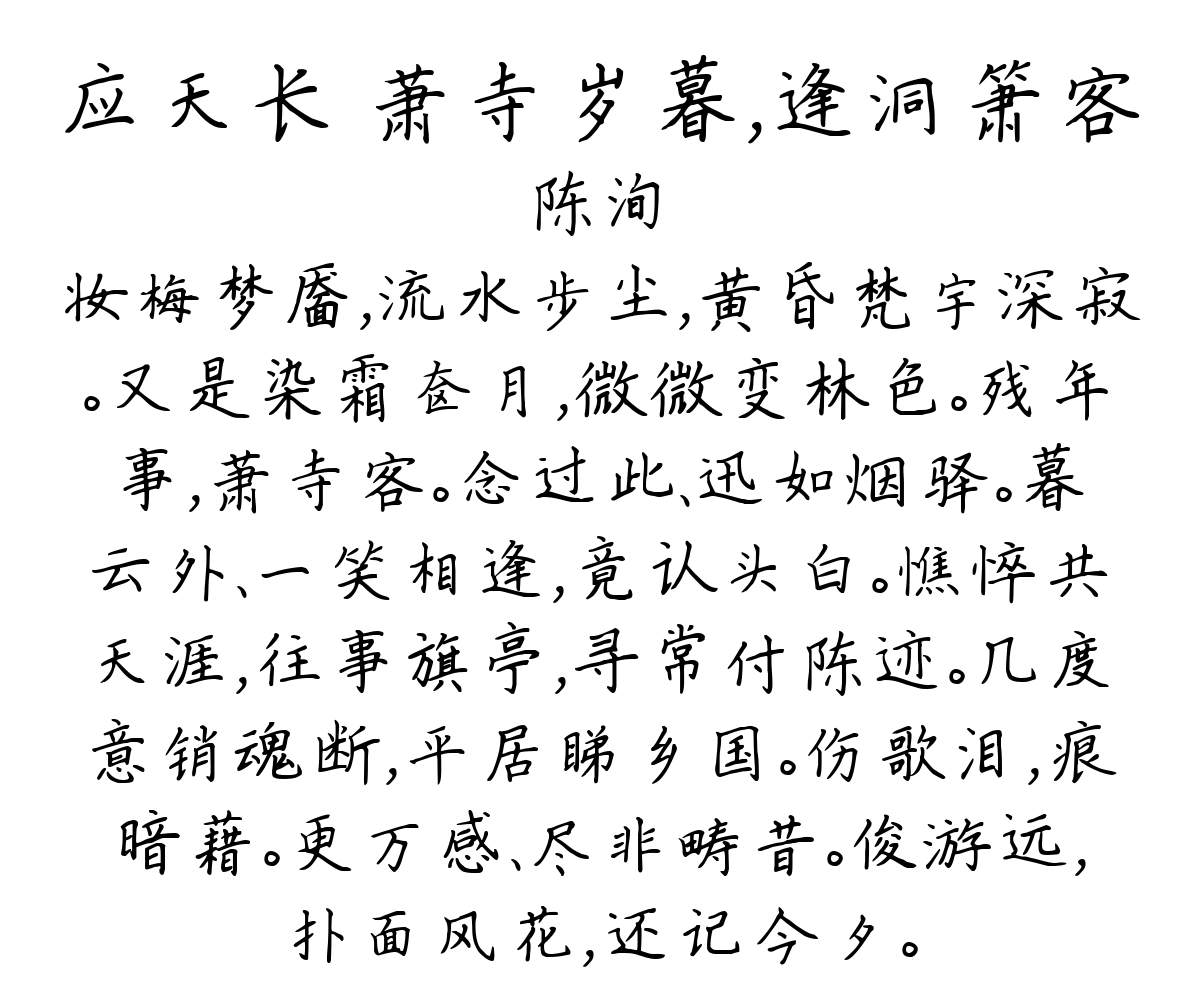 应天长 萧寺岁暮,逢洞箫客
陈洵
妆梅梦靥,流水步尘,黄昏梵宇深寂
。又是染霜奁月,微微变林色。残年
事,萧寺客。念过此、迅如烟驿。暮
云外、一笑相逢,竟认头白。憔悴共
天涯,往事旗亭,寻常付陈迹。几度
意销魂断,平居睇乡国。伤歌泪,痕
暗藉。更万感、尽非畴昔。俊游远,
扑面风花,还记今夕。